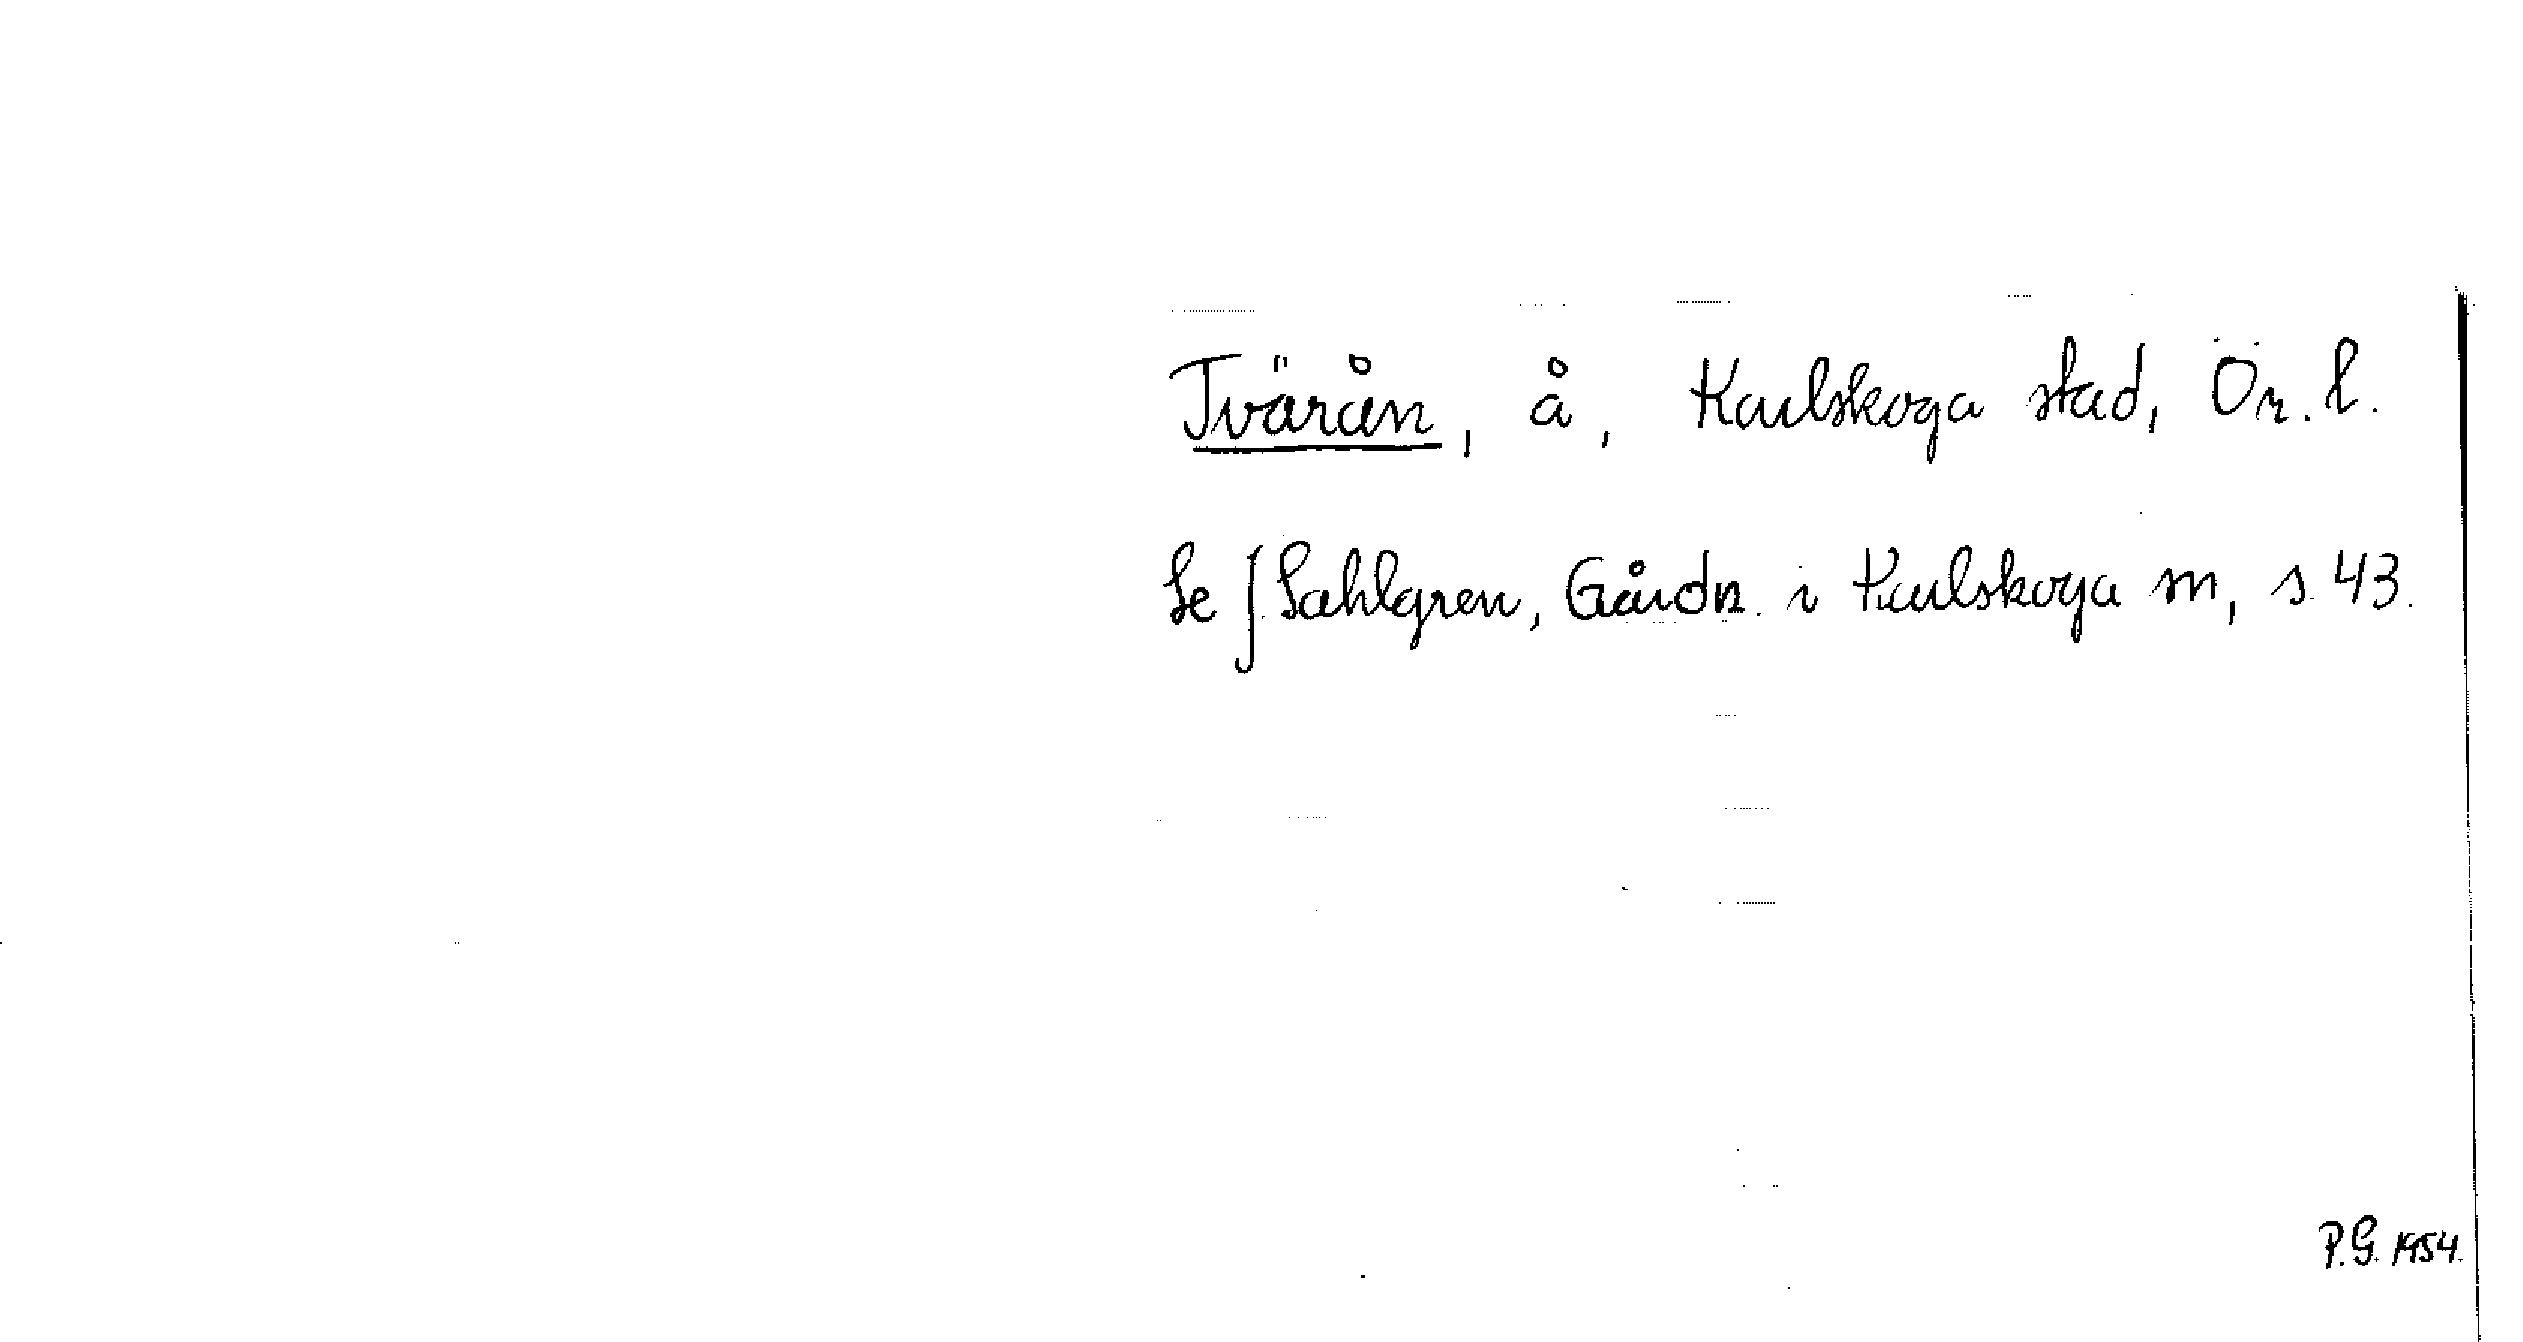 Tvärån, å, Karlskoga stad, Ör. l.
Se J Sahlgren, Gårdn. i Karlskoga m, s. 43.
P.G. 1954.